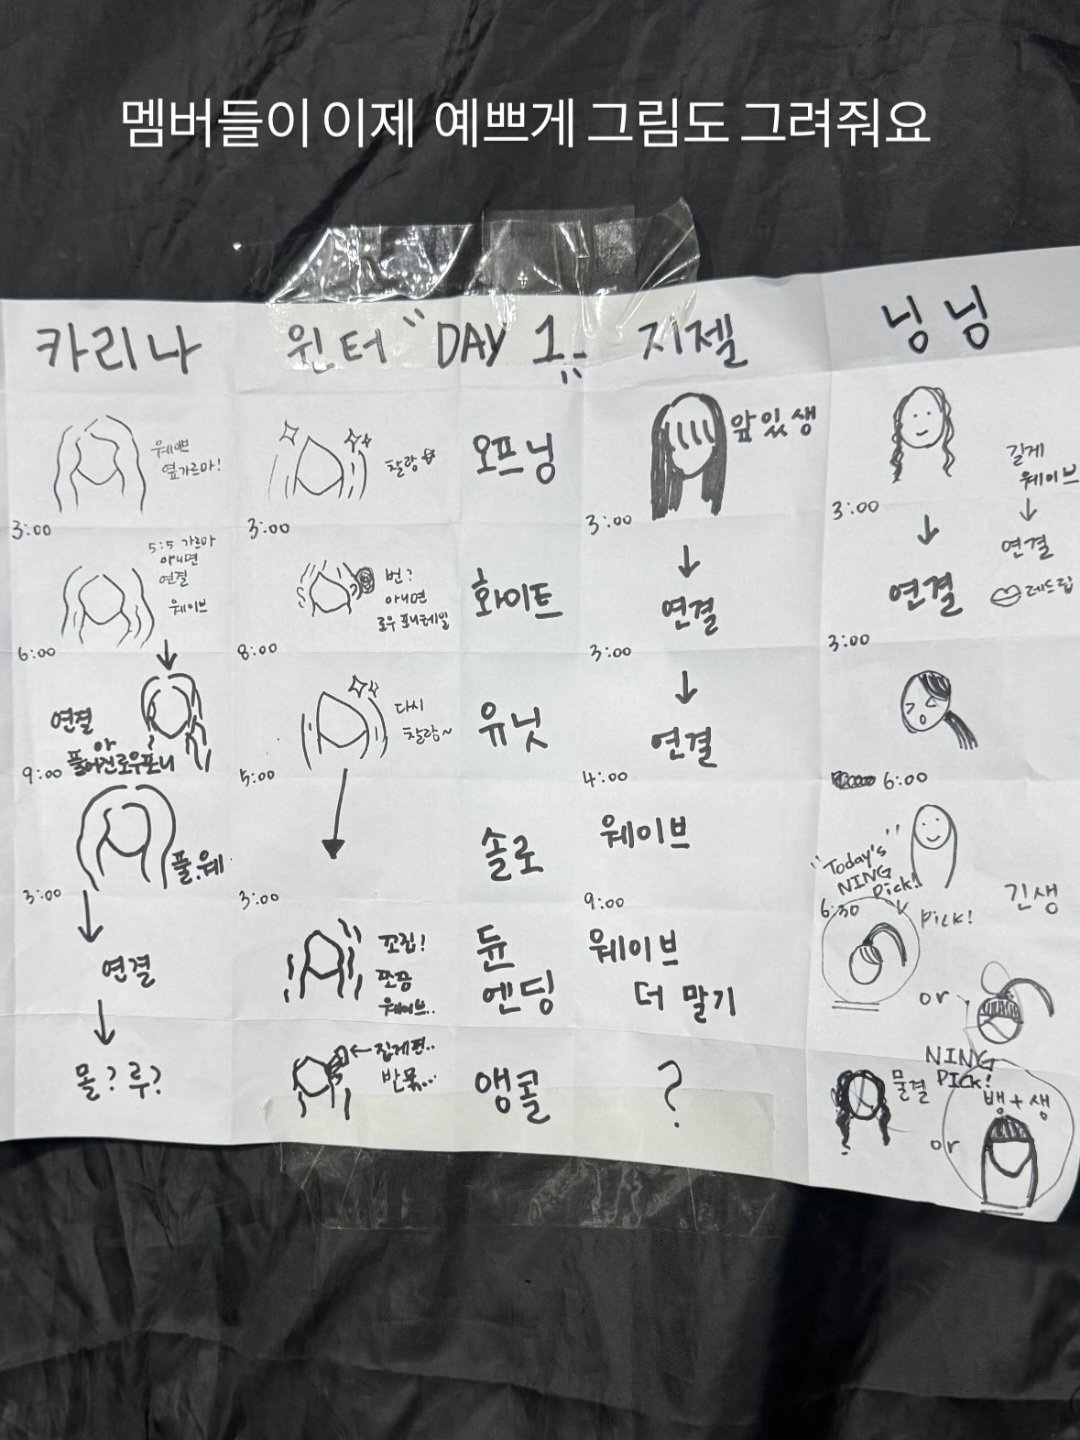 멤버들이 이제 예쁘게 그림도 그려줘요
카리나
윈터
"DAY 1"
지젤
닝닝
옆가르마!
3:00
찰랑
3:00
오프닝
앞있생
3:00
길게
웨이브
↓
연결
레드립
3:00
5:5 가르마
아니면
연결
웨이브
6:00
번?
아니면
로우 포니테일
8:00
화이트
↓
연결
3:00
↓
연결
3:00
연결
풀어진로우포니
9:00
다시
찰랑~
5:00
유닛
↓
연결
4:00
6:00
풀.웨
3:00
3:00
솔로
웨이브
9:00
"Today's"
NING
Pick!
6:30
Pick!
긴생
or
↓
연결
꼬집!
쪼끔
웨이브..
듄
엔딩
웨이브
더 말기
↓
몰?루?
←집게핀..
반묶..
앵콜
?
물결
NING
PICK!
or
뱅+생